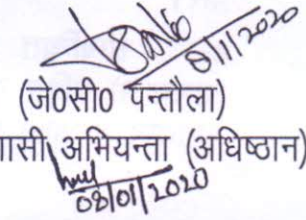 8/1/2020
(जे0सी0 पन्तौला)
ासी अभियन्ता (अधिष्ठान)
08/01/2020